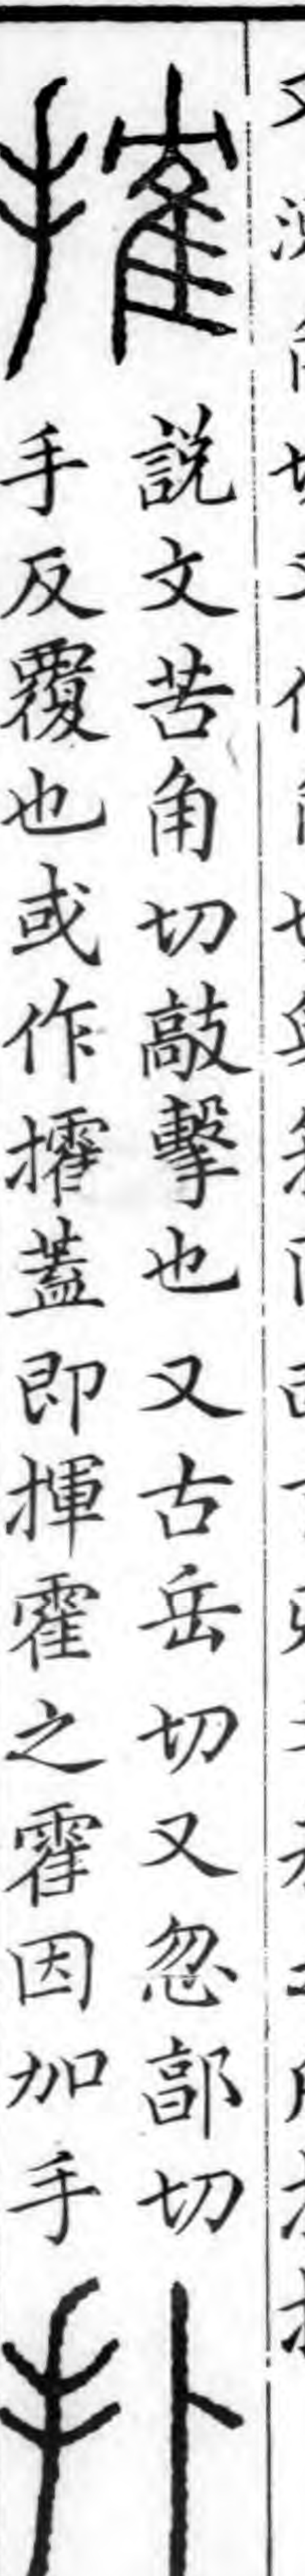 搉
說文苦角切敲擊也又古岳切又忽郭切
手反覆也或作攉蓋即揮霍之霍因加手
扑